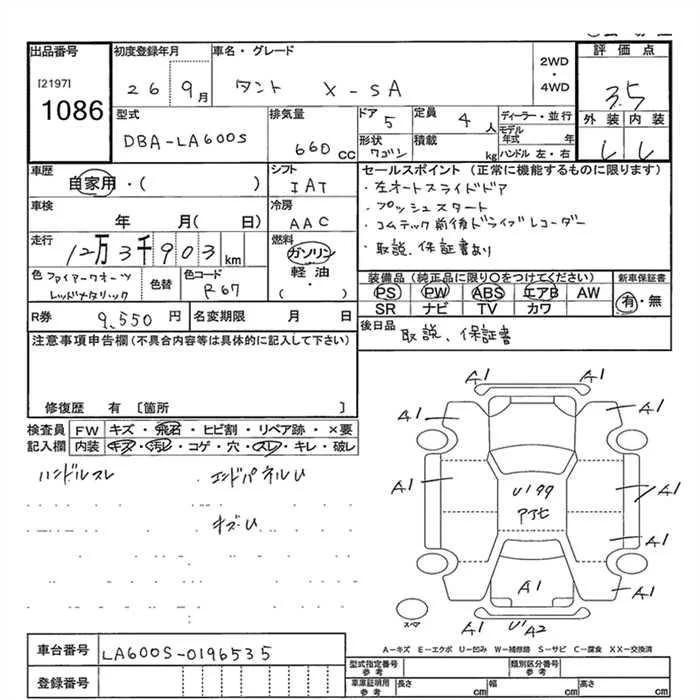 出品番号
[2197]
1086
初度登録年月
26 9月
車名・グレード
タント X-SA
2WD
・
4WD
評価点
3.5
外装 内装
型式
DBA-LA600S
排気量
660 CC
ドア
5
形状
ワゴン
定員
4 人
積載
kg
ディーラー・並行
モデル年式 年
ハンドル 左・右
車歴
自家用・( )
シフト
IAT
車検
年 月( 日)
冷房
AAC
走行
12万3千903 km
燃料
ガソリン
軽油
・
( )
色 ファイアークオーツレッドメタリック
色替
色コード
R67
R券
9,550 円
名変期限 月 日
セールスポイント (正常に機能するものに限ります)
・左オートスライドドア
・プッシュスタート
・コムテック前後ドライブレコーダー
・取説、保証書あり
装備品(純正品に限り○をつけてください)
新車保証書
PS PW ABS エアB AW
SR ナビ TV カワ
有・無
後日品
取説、保証書
注意事項申告欄(不具合内容等は具体的に記入して下さい)
修復歴 有 [箇所 ]
検査員記入欄
FW キズ・飛石・ヒビ割・リペア跡・×要
内装 キズ・汚レ・コゲ・穴・スレ・キレ・破レ
ハンドルスレ エンドパネルU
キズU
A1 A1
A1 A1
A1 A1
U199
アバタ
A1
A1 A1
A1
U1 A2
スペア
A-キズ E-エクボ U-凹み W-補修跡 S-サビ C-腐食 XX-交換済
車台番号
LA600S-0196535
登録番号
型式指定番号
参考
類別区分番号
参考
車庫証明用
参考
長さ cm 幅 cm 高さ cm